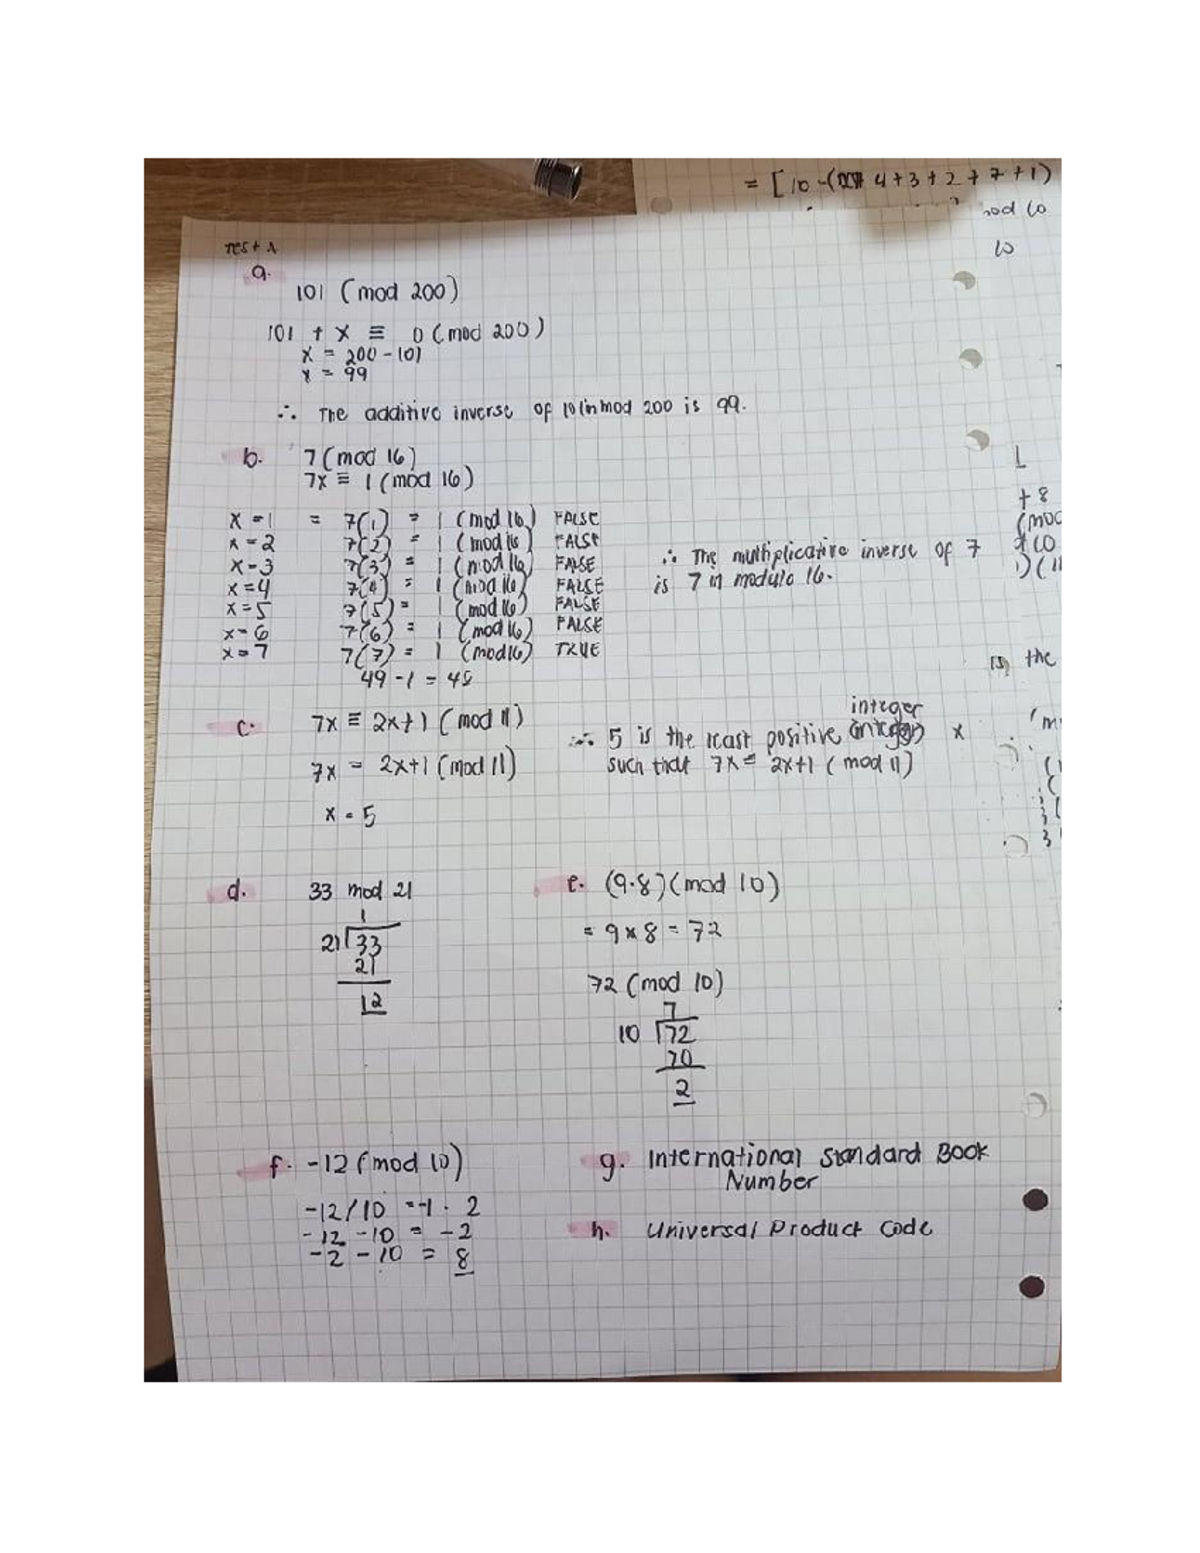 = [10 -( 4+3+2+7+1)
mod 10
10
Test A
a.
101 (mod 200)
101 + x ≡ 0 (mod 200)
x = 200 - 101
x = 99
∴ The additive inverse of 101 in mod 200 is 99.
b. 7 (mod 16)
7x ≡ 1 (mod 16)
x = 1 = 7(1) = 1 (mod 16) FALSE
x = 2 7(2) = 1 (mod 16) FALSE
x = 3 7(3) = 1 (mod 16) FALSE
x = 4 7(4) = 1 (mod 16) FALSE
x = 5 7(5) = 1 (mod 16) FALSE
x = 6 7(6) = 1 (mod 16) FALSE
x = 7 7(7) = 1 (mod 16) TRUE
49 - 1 = 48
∴ The multiplicative inverse of 7
is 7 in modulo 16.
c. 7x ≡ 2x+1 (mod 11)
7x = 2x+1 (mod 11)
x = 5
integer
∴ 5 is the least positive x
such that 7x ≡ 2x+1 (mod 11)
d. 33 mod 21
1
21 33
21
12
e. (9·8)(mod 10)
= 9 x 8 = 72
72 (mod 10)
7
10 72
70
2
f. -12 (mod 10)
-12/10 = -1 · 2
-12 -10 = -2
-2 - 10 = 8
g. International Standard Book
Number
h. Universal Product Code
+8
(mod
is the